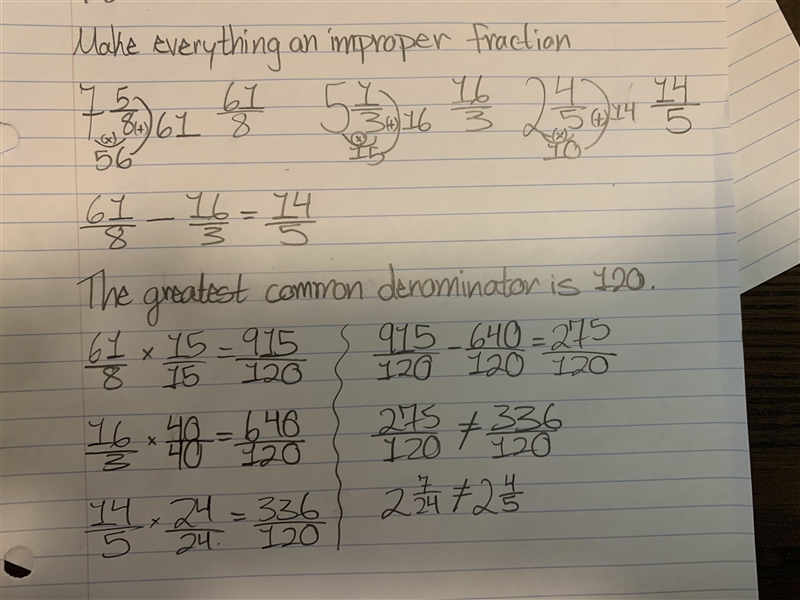 Make everything an improper fraction
7 5/8 (x) 56 (+) 61 61/8 5 1/3 (x) 15 (+) 16 16/3 2 4/5 (x) 10 (+) 14 14/5
61/8 - 16/3 = 14/5
The greatest common denominator is 120.
61/8 × 15/15 = 915/120
16/3 × 40/40 = 640/120
14/5 × 24/24 = 336/120
915/120 - 640/120 = 275/120
275/120 ≠ 336/120
2 7/24 ≠ 2 4/5